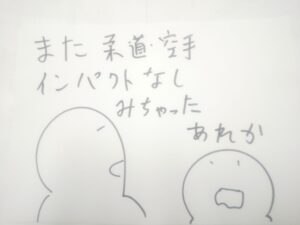 また 柔道・空手
インパクトなし
みちゃった
あれか